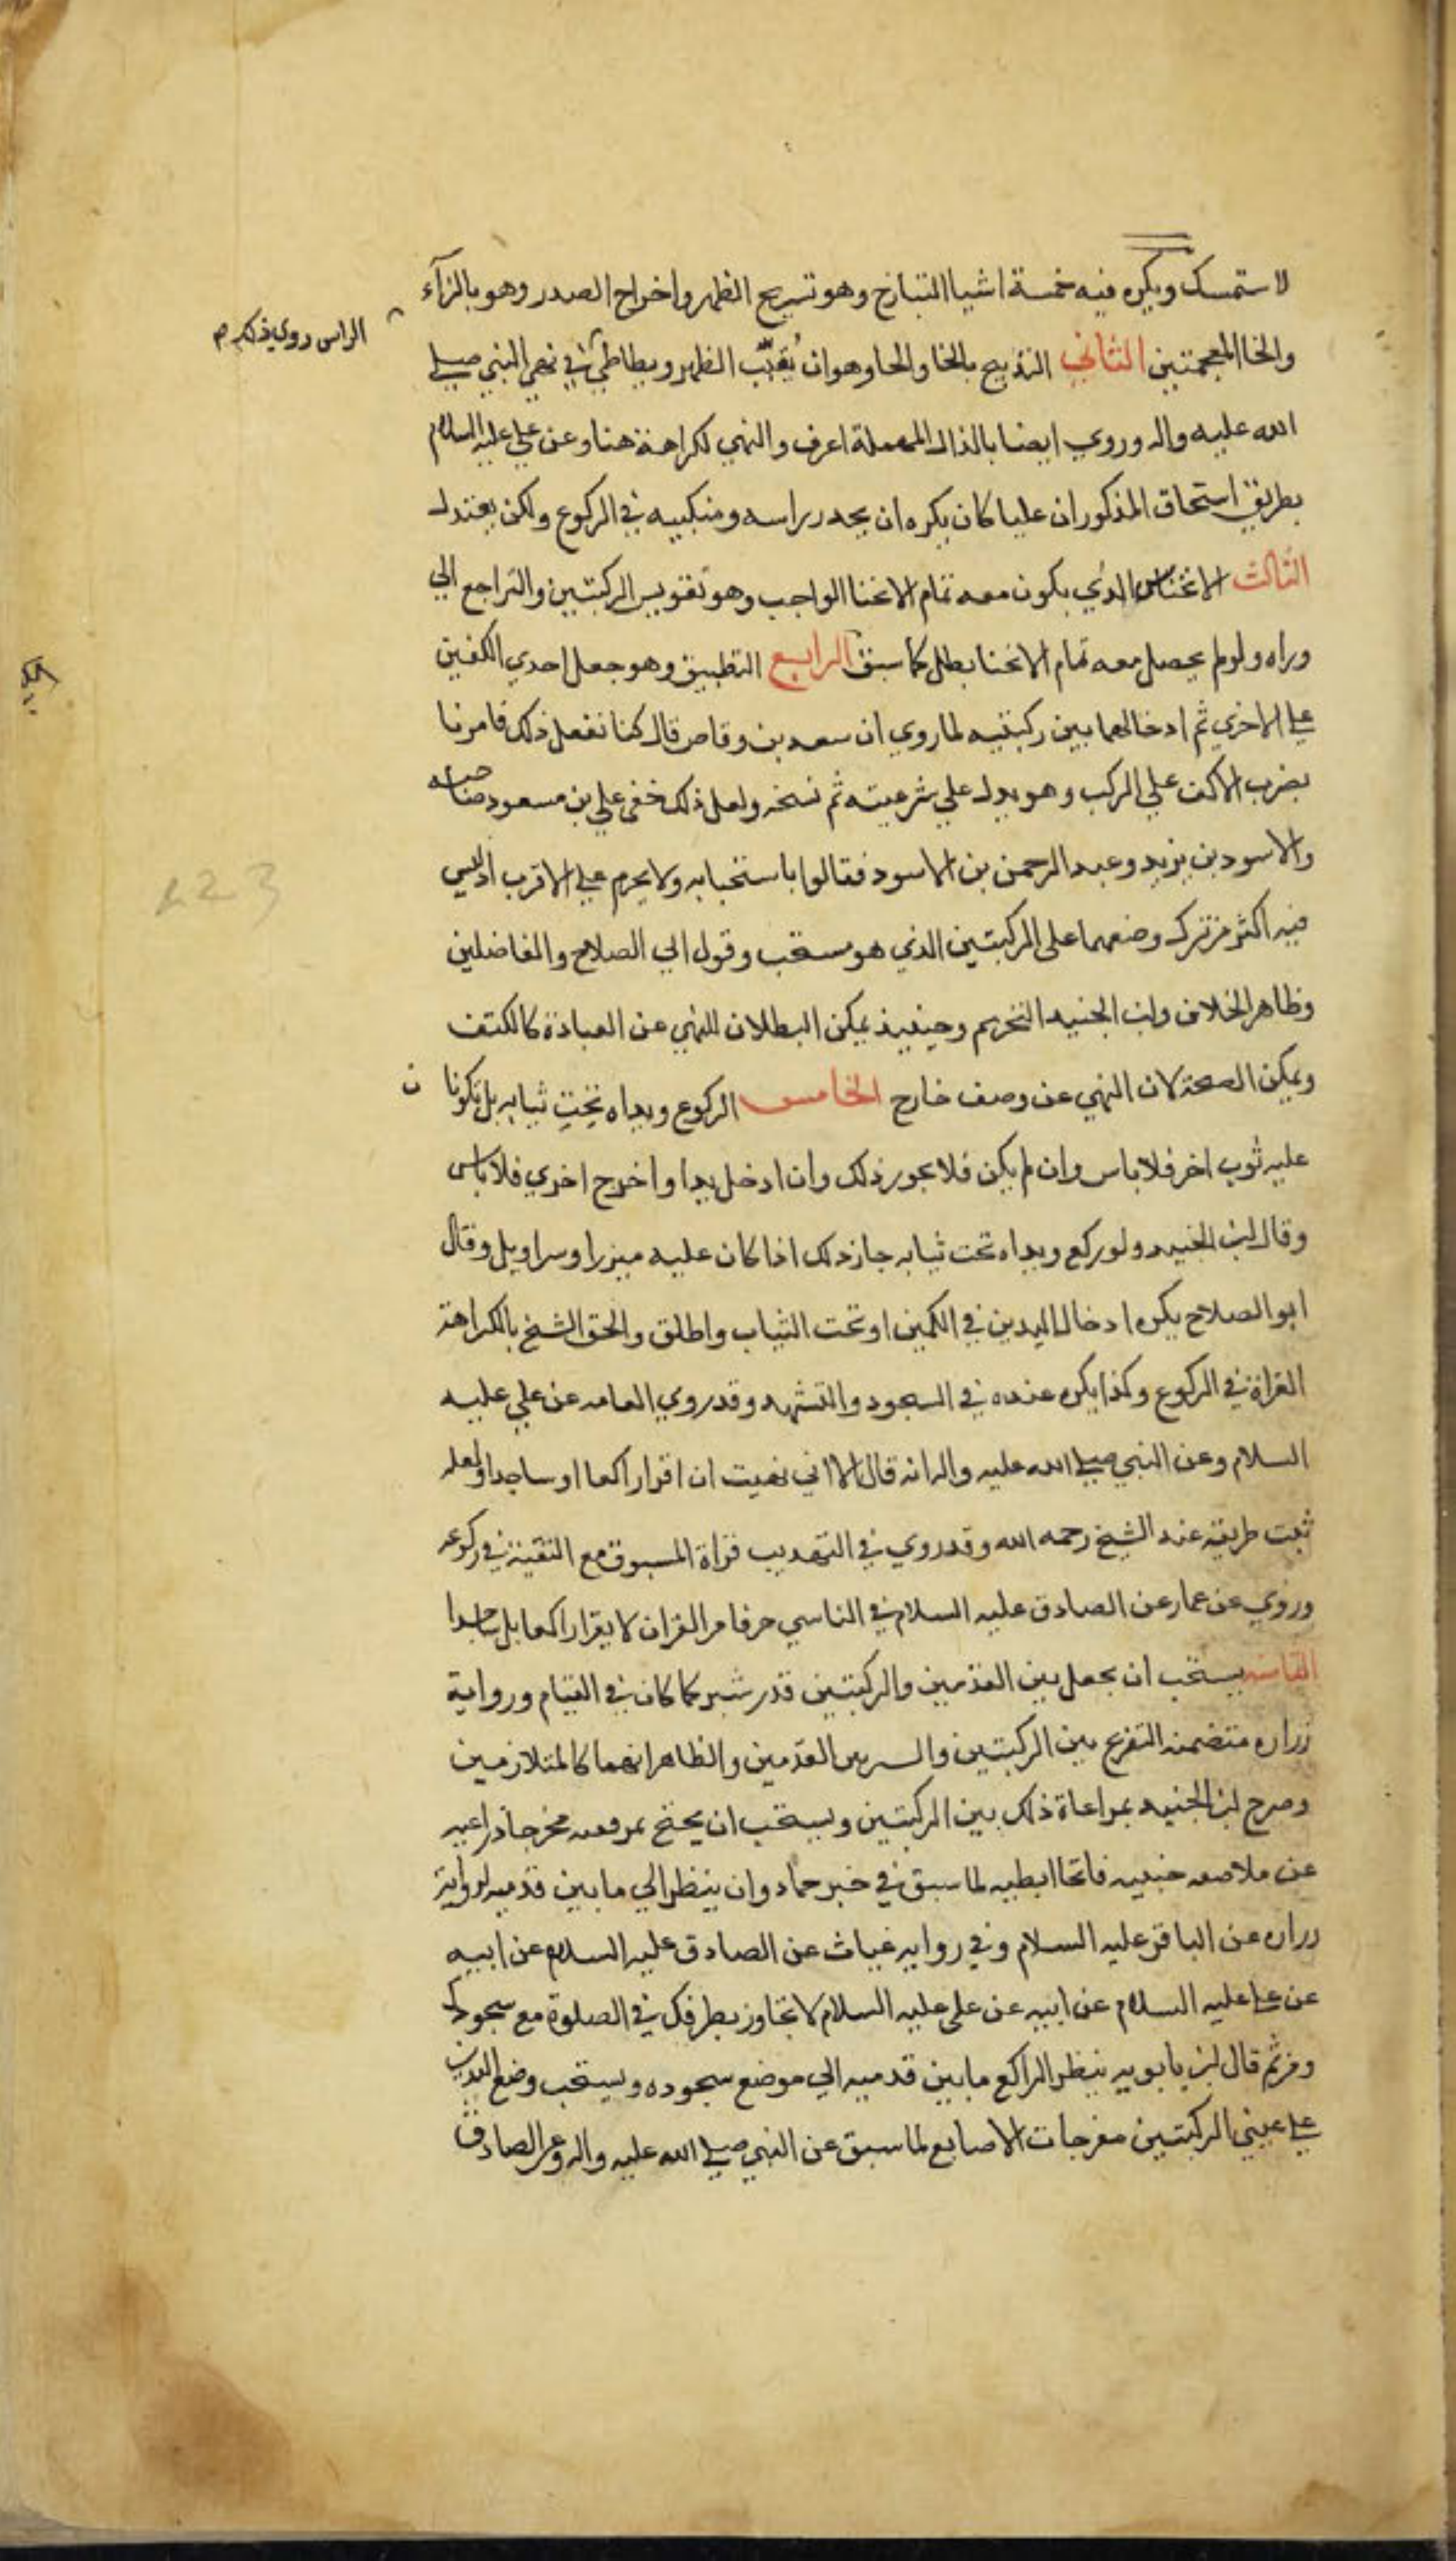 لاستمسك ويكره فيه خمسة اشيا التبازخ وهو تسريح الظهر واخراج الصدر وهو بالزآء
والخا المعجمتين الثاني التذبيح بالخا والحا وهو ان يُقبّب الظهر ويطاطي في نهي النبي صلى
الراس روي ذلك م
الله عليه واله وروي ايضا بالذال المهملة اعرف والنهي لكراهة هنا وعن علي عليه السلام
بطريق استحاق المذكور ان عليا كان يكره ان يحدر راسه ومنكبيه في الركوع ولكن يعتدل
الثالث الانخناس الذي يكون معه تمام الانحنا الواجب وهو تقويس الركبتين والتراجع الي
وراه ولو لم يحصل معه تمام الانحنا بطل كما سبق الرابع التطبيق وهو جعل احدي الكفين
علي الاخري ثم ادخالهما بين ركبتيه لما روي ان سعد بن وقاص قال كنا نفعل ذلك فامرنا
بضرب الاكف علي الركب وهو يدل علي شرعيته ثم نسخه ولعل ذلك خفي علي بن مسعود صاحباه
والاسود بن يزيد وعبد الرحمن بن الاسود فقالوا باستحبابه ولا يحرم علي الاقرب اذ ليس
فيه اكثر من ترك وضعهما على الركبتين الذي هو مستحب وقول ابي الصلاح والفاضلين
وظاهر الخلاف وابن الجنيد التحريم وحينيذ يمكن البطلان للنهي عن العبادة كالكتف
ويمكن الصحة لان النهي عن وصف خارج الخامس الركوع ويداه تحت ثيابه بل تكونا ن
عليه ثوب اخر فلا باس وان لم يكن فلا يجوز ذلك وان ادخل يدا واخرج اخري فلا باس
وقال ابن الجنيد ولو ركع ويداه تحت ثيابه جاز ذلك اذا كان عليه ميزر او سراويل وقال
ابو الصلاح يكره ادخال اليدين في الكمين او تحت الثياب واطلق والحق الشيخ بالكراهة
القراة في الركوع وكذا يكره عنده في السجود والتشهد وقد روي العامه عن علي عليه
السلام وعن النبي صلي الله عليه واله انه قال الا اني نهيت ان اقرا راكعا او ساجدا ولعله
ثبت طريقه عند الشيخ رحمه الله وقد روي في التهذيب قراة المسبوق مع التقية في ركوعه
وروي عن عمار عن الصادق عليه السلام في الناسي حرفا من القران لا يقرا راكعا بل ساجدا
الثامنه يستحب ان يجعل بين القدمين والركبتين قدر شبر كما كان في القيام ورواية
زراره متضمنه التفريج بين الركبتين والسر بين القدمين والظاهر انهما كالمتلازمين
وصرح ابن الجنيد بمراعاة ذلك بين الركبتين ويستحب ان يجنح بمرفقه مخرجا ذراعيه
عن ملاصقه جنبيه فاتحا ابطيه لما سبق في خبر حماد وان ينظر الي ما بين قدميه لرواية
زراره عن الباقر عليه السلام وفي روايه غياث عن الصادق عليه السلام عن ابيه
عن علي عليه السلام عن ابيه عن على عليه السلام لا تجاوز بطرفك في الصلوة مع سجودك
ومن ثم قال ابن بابويه ينظر الراكع ما بين قدميه الي موضع سجوده ويستحب وضع اليدين
علي عيني الركبتين مفرجات الاصابع لما سبق عن النبي صلي الله عليه واله وعن الصادق